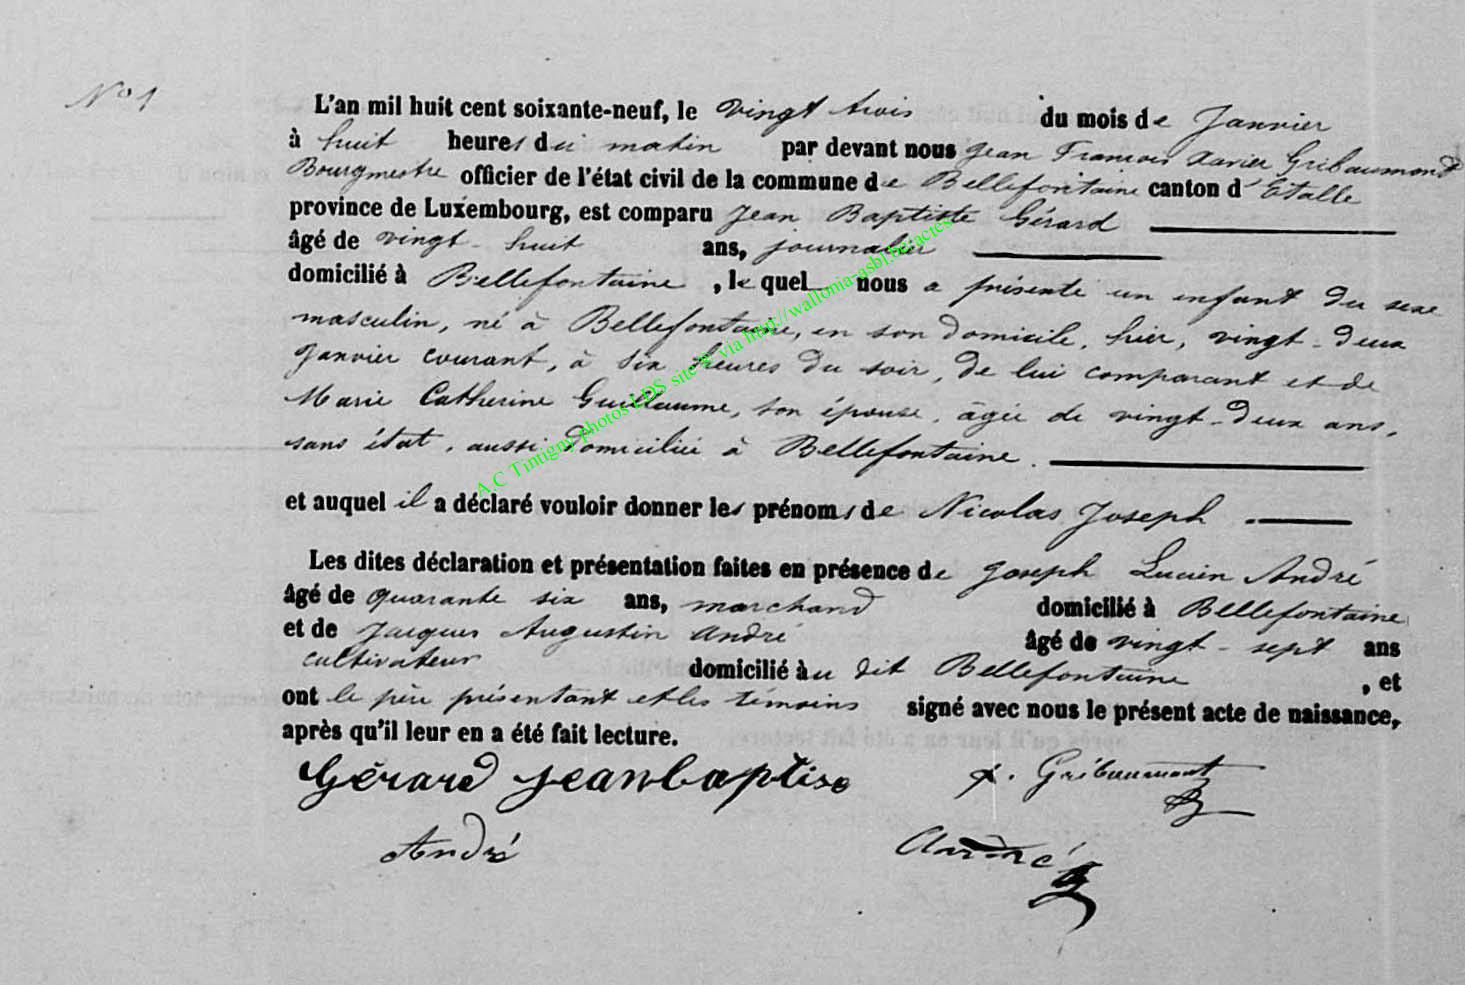 N° 1
L'an mil huit cent soixante-neuf, le vingt trois du mois de Janvier
à huit heures du matin par devant nous Jean François Xavier Gribaumont
Bourgmestre officier de l'état civil de la commune de Bellefontaine canton d'Etalle
province de Luxembourg, est comparu Jean Baptiste Gérard
âgé de vingt-huit ans, journalier
domicilié à Bellefontaine, lequel nous a présenté un enfant du sexe
masculin, né à Bellefontaine, en son domicile, hier, vingt-deux
Janvier courant, à six heures du soir, de lui comparant et de
Marie Catherine Guillaume, son épouse, âgée de vingt-deux ans,
sans état, aussi domiciliée à Bellefontaine.
et auquel il a déclaré vouloir donner les prénoms de Nicolas Joseph.
Les dites déclaration et présentation faites en présence de Joseph Lucien André
âgé de quarante six ans, marchand domicilié à Bellefontaine
et de Jacques Augustin André âgé de vingt-sept ans
cultivateur domicilié àu dit Bellefontaine, et
ont le père présentant et les témoins signé avec nous le présent acte de naissance,
après qu'il leur en a été fait lecture.
Gérard jeanbaptise x. Gribaumont
André André
A.C Tintigny photos LDS site via http://wallonia-asbl.be/actes